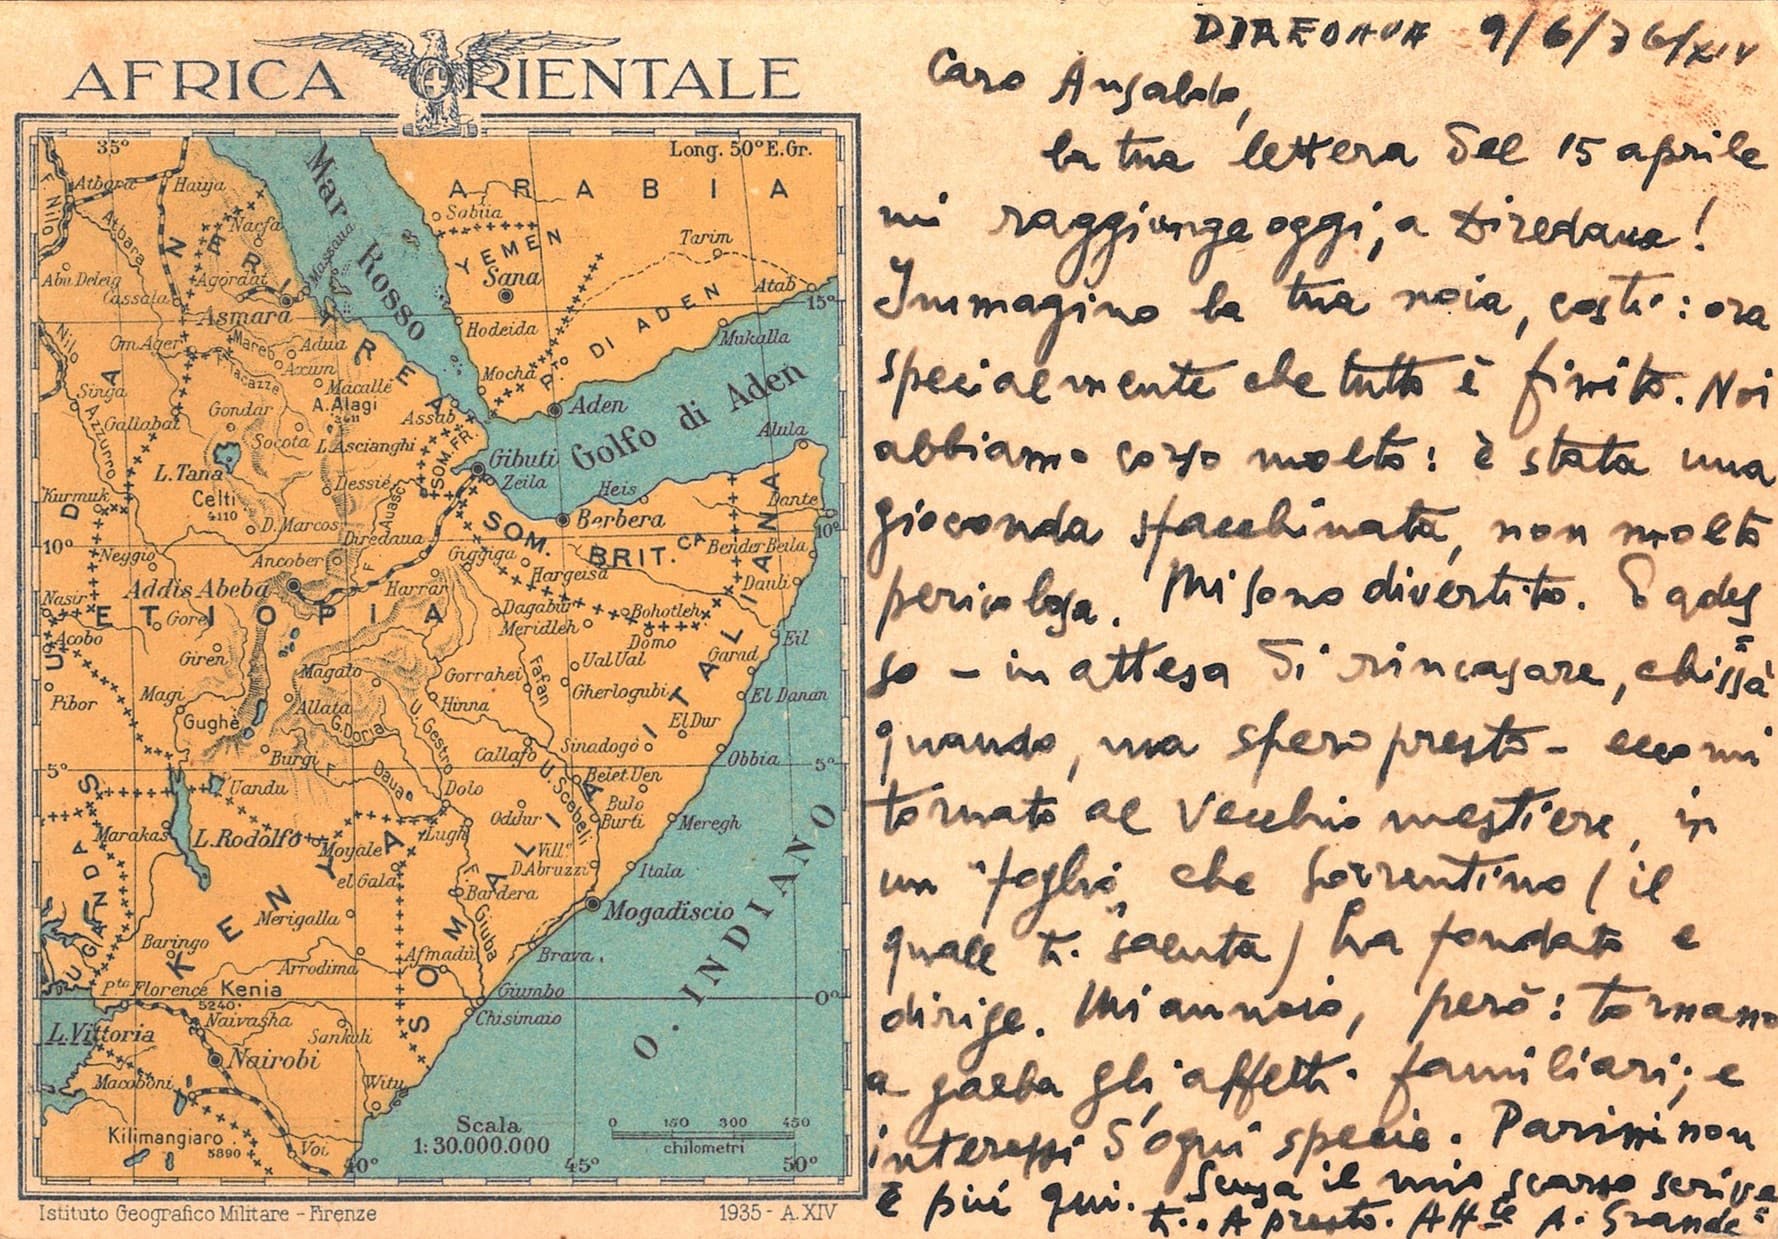 AFRICA ORIENTALE
35°
Long. 50° E. Gr.
Atbara
Haija
F. Nilo
Atbara
Nacfa
Abu Deleig
Cassala
Agordat
Massaua
Asmara
ERITREA
Mar Rosso
ARABIA
Sobiia
YEMEN
Sana
Tarim
Atab
15°
Hodeida
P.to DI ADEN
Mukalla
Mocha
Aden
Golfo di Aden
Alula
Nilo
Om Ager
Mareb
Adua
Axum
F. Tacazze
Macallè
A. Alagi
Singa
Azzurro
Gallabat
Gondar
Socota
L. Ascianghi
Assab
SOM. FR.
Gibuti
Zeila
L. Tana
Celti
4110
Dessiè
F. Auasc
Heis
Dante
Kurmuk
D. Marcos
Berbera
10°
10°
Diredaua
SOM. BRIT.CA
Bender Beila
Neggio
Ancober
Giggiga
Hargeisa
Addis Abeba
Harrar
Dauli
Nasir
ETIOPIA
Gore
Dagabur
Bohotleh
Meridleh
Acobo
Domo
Eil
Giren
Ual Ual
Garad
Magalo
Gorrahei
Fafan
Gherlogubi
El Danan
Pibor
Magi
Allata
U. Gestro
Hinna
Gughè
G. Doria
El Dur
SOMALIA ITALIANA
Callafo
Sinadogò
Obbia
5°
5°
Burgi
F. Daua
U. Scebeli
Belet Uen
Uandu
Dolo
Bulo Burti
Oddur
Meregh
Marakas
L. Rodolfo
Lugh
Moyale
Vill° D. Abruzzi
Itala
el Gala
F. Giuba
Bardera
Mogadiscio
UGANDA
KENYA
Merigalla
Baringo
Afmadù
Brava
Arrodima
O. INDIANO
P.to Florence
Kenia
5240
Giumbo
0°
Chisimaio
Naivasha
Sankuli
L. Vittoria
Nairobi
Macoboni
Witu
Kilimangiaro
5890
Voi
Scala
1:30.000.000
0 150 300 450
chilometri
40°
45°
50°
Istituto Geografico Militare - Firenze
1935 - A. XIV
DIREDAUA 9/6/36/XIV
Caro Ansaldo,
la tua lettera del 15 aprile
mi raggiunge oggi, a Diredaua!
Immagino la tua noia, costì: ora
specialmente che tutto è finito. Noi
abbiamo corso molto: è stata una
gioconda sfacchinata, non molto
pericolosa. Mi sono divertito. E ades=
so - in attesa di rincasare, chissà
quando, ma spero presto - eccomi
tornato al vecchio mestiere, in
un "foglio", che Sorrentino (il
quale ti saluta) ha fondato e
dirige. Mi annoio, però: tornano
a galla gli affetti familiari; e
interessi d'ogni specie. Parisi non
è più qui. Scusa il mio scarso scrive
ti. A presto. Aff.te A. Grande